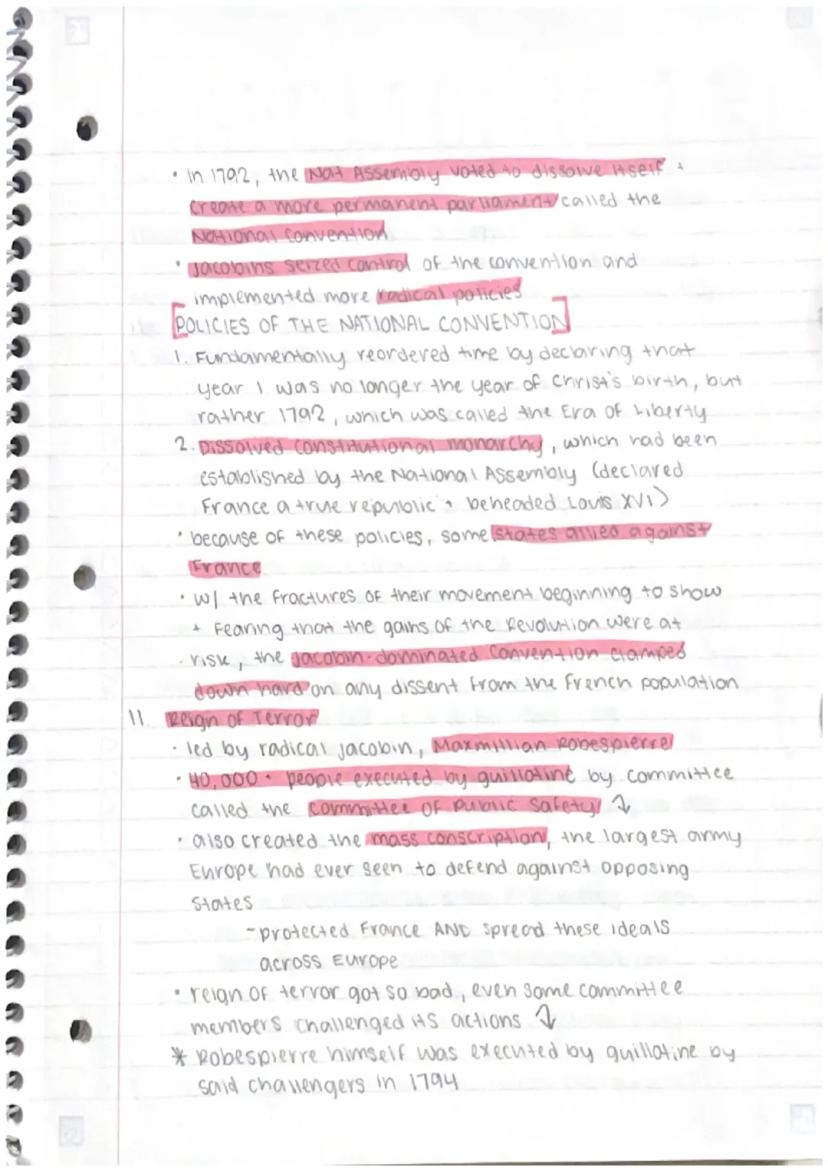 • in 1792, the Nat Assembly voted to dissolve itself +
create a more permanent parliament called the
National Convention
• Jacobins seized control of the convention and
implemented more radical policies
[POLICIES OF THE NATIONAL CONVENTION]
1. Fundamentally reordered time by declaring that
year 1 was no longer the year of Christ's birth, but
rather 1792, which was called the Era of Liberty
2. Dissolved constitutional monarchy, which had been
established by the National Assembly (declared
France a true republic + beheaded Louis XVI)
• because of these policies, some states allied against
France
• w/ the fractures of their movement beginning to show
+ fearing that the gains of the Revolution were at
risk, the Jacobin-dominated Convention clamped
down hard on any dissent from the French population
11. Reign of Terror
• led by radical Jacobin, Maxmillian Robespierre
• 40,000+ people executed by guillotine by committee
called the Committee of Public Safety ↓
• also created the mass conscription, the largest army
Europe had ever seen to defend against opposing
states
- protected France AND spread these ideals
across Europe
• reign of terror got so bad, even some committee
members challenged its actions ↓
* Robespierre himself was executed by guillotine by
said challengers in 1794